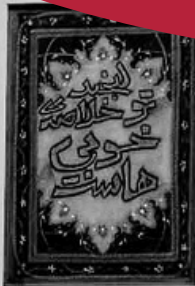 لبخند
تو خلاصه‌ی
خوبی
هاست